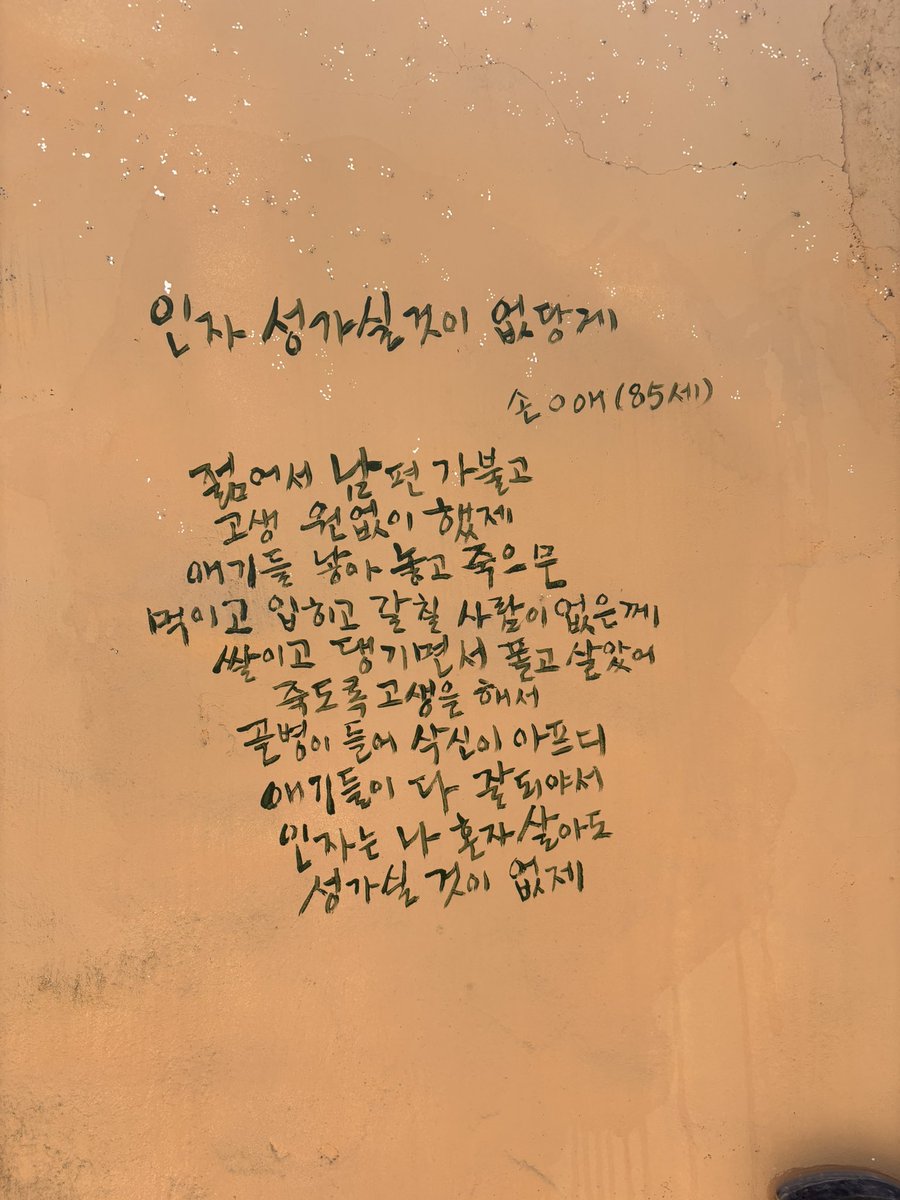 인자 성가실것이 없당게
손○애(85세)
젊어서 남편 가불고
고생 원없이 했제
애기들 낳아 놓고 죽으믄
먹이고 입히고 갈칠 사람이 없은께
쌀이고 댕기면서 폴고 살았어
죽도록 고생을 해서
골병이 들어 삭신이 아프디
애기들이 다 잘되야서
인자는 나 혼자 살아도
성가실 것이 없제